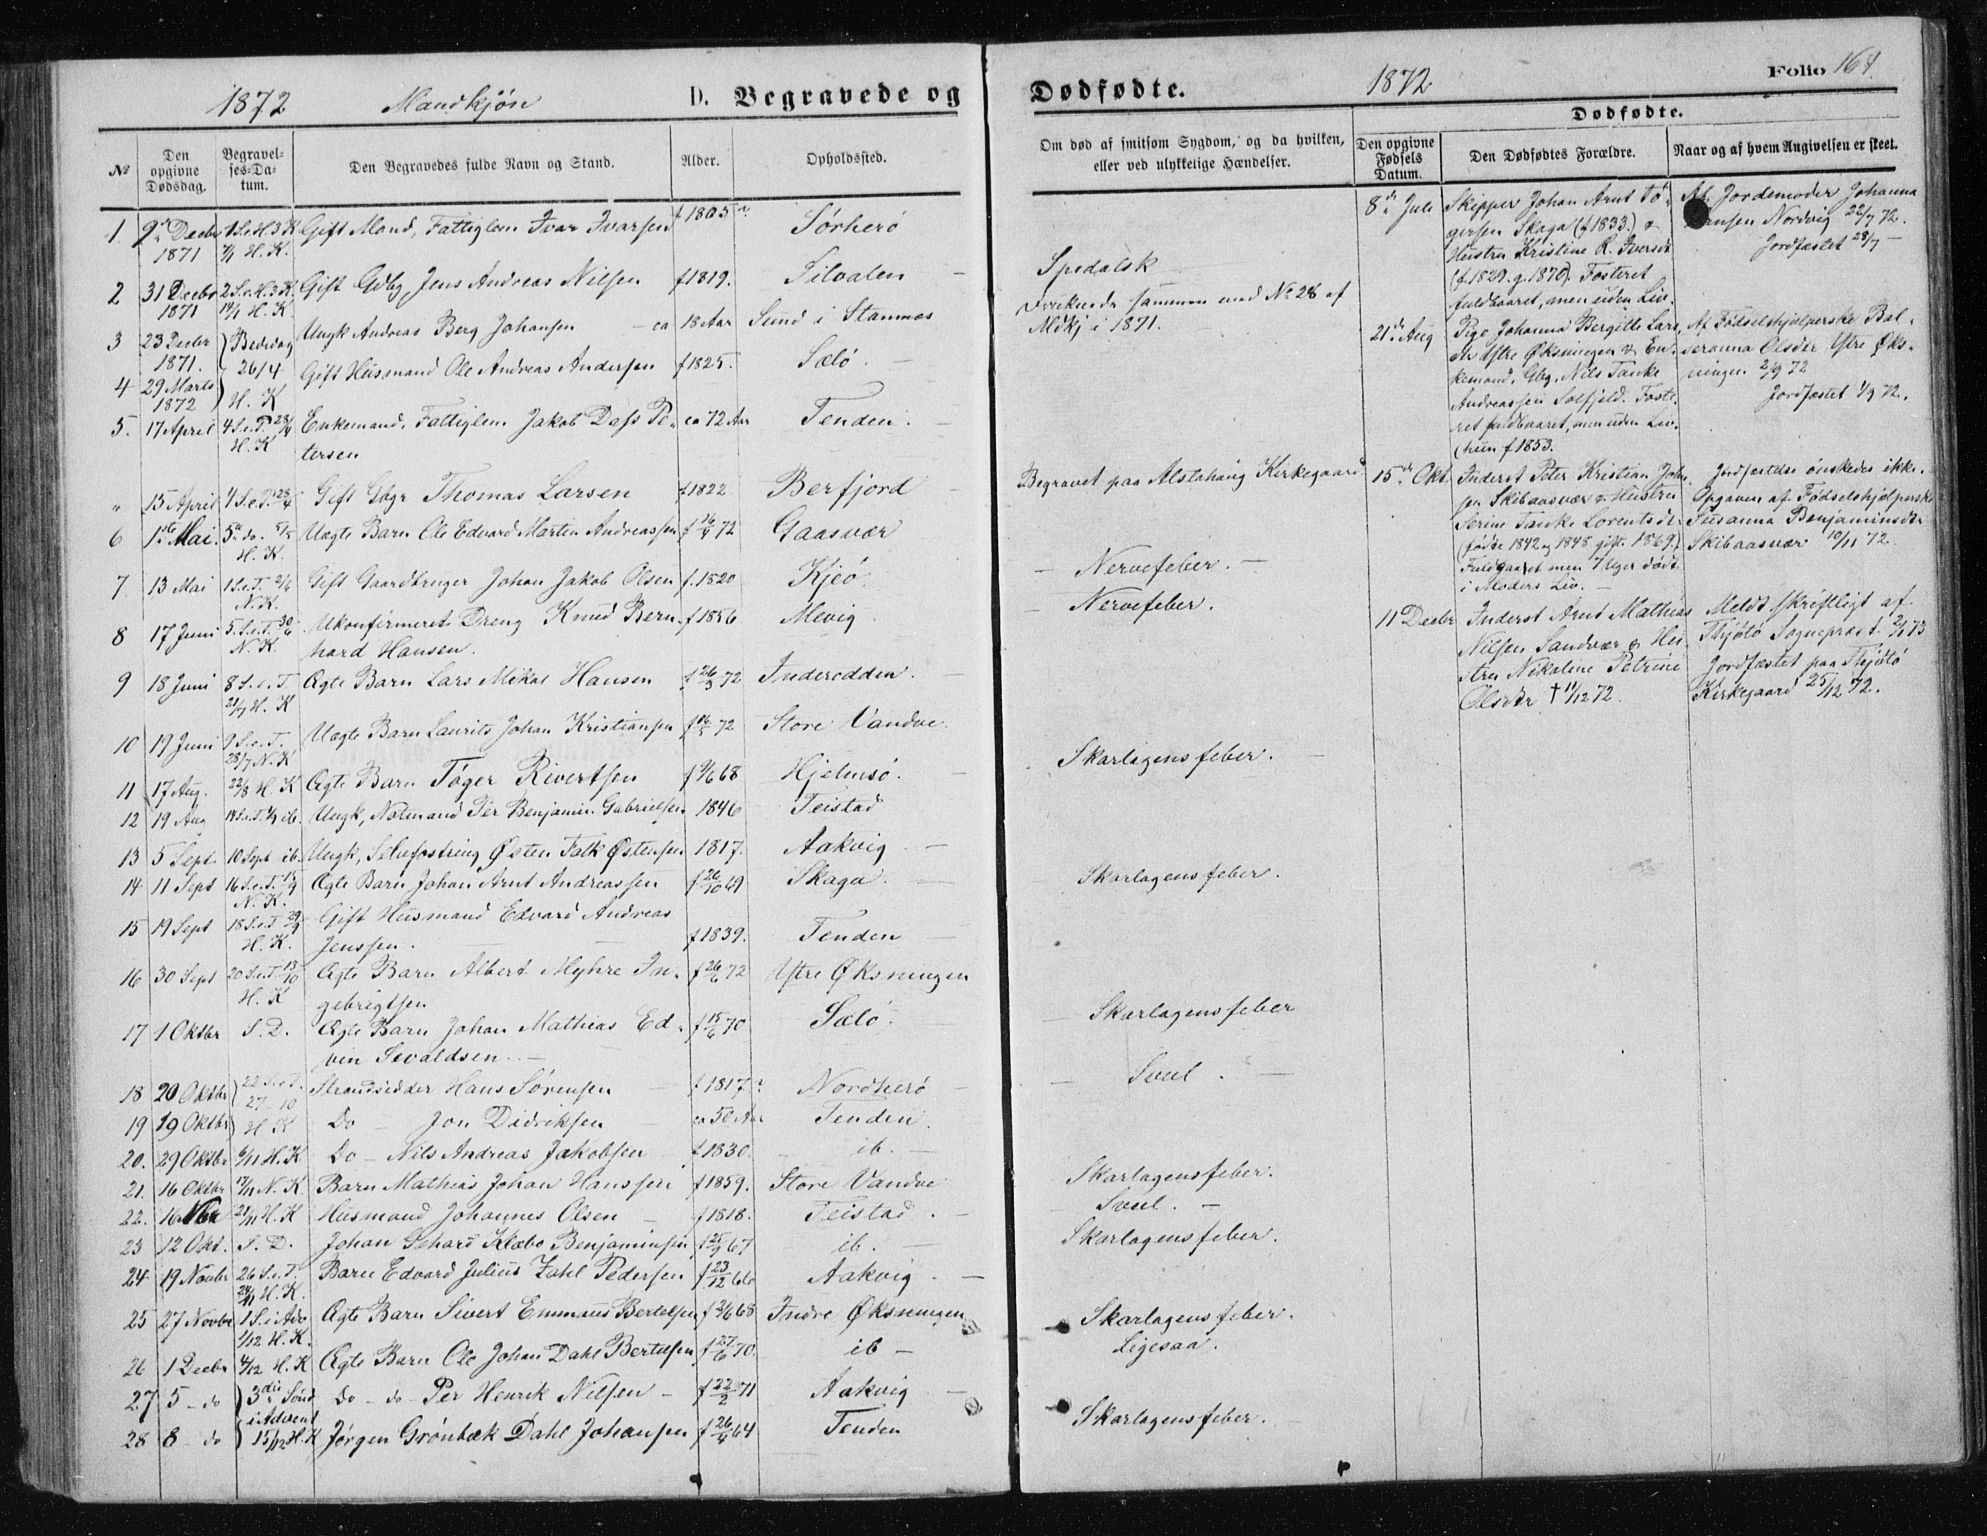 1872 Mandkjøn D. Begravede og
№ Den opgivne Dødsdag. Begravelses-Datum. Den Begravedes fulde Navn og Stand. Alder. Opholdssted.
1. 9de Decbr 1S.e.H.3K Gift Mand, Fattiglem Ivar Ivarsen f 1805 Sørherø
1871 H. K.
2 31 Decbr 2S.e.H.3K. Gift Gdbg. Jens Andreas Nilsen f 1819. Silvalen
1871 14/1 H. K
3 23 Decbr Bededag Ungk Andreas Berg Johansen ca 18 Aar Sund i Stamnes
1871. 26/4
4 29 Marts Gift Husmand Ole Andreas Andersen f 1825. Sælø
1872 H. K
5. 17 April 4S.e.P. 28/4 Enkemand, Fattiglem Jakob Dass Pe- ca 72 Aar Tenden.
H. K tersen
" 15 April 4S.e.P. 28/4 Gift Gbgr Thomas Larsen f 1822 Berfjord
6 1ste Mai. 5te do. 5/5 Uægte Barn Ole Edvard Marten Andreassen f 16/4 72 Gaasvær
H. K.
7. 13 Mai 1S.e.T. 2/6 Gift Gaardbruger Johan Jakob Olsen f. 1820 Kjeø.
N. K.
8 17 Juni 5.S.e.T. 30/6 Ukonfirmeret Dreng Knud Bern- f 1856 Mevig.
N. K. hard Hansen.
9 18 Juni 8 S.e.T Ægte Barn Lars Mikal Hansen f 26/3 72 Inderodden.
21/7 H. K
10 19 Juni 9 S.e.T. Uægte Barn Laurits Johan Kristiansen f 72 Store Vandve
28/7 N. K
11 17 Aug. 22/8 H. K Ægte Barn Tøger Rivertsen f 68 Hjelmsø.
12 19 Aug 14S.e.T. 1/9 ib. Ungk, Notmand Per Benjamin Gabrielsen 1846 Teistad
13 5 Sept. 10 Sept ib. Ungk, Selvfostring Østen Falk Østensen 1817. Aakvig.
14 11 Sept 16 S.e.T. 15/9 Ægte Barn Johan Arnt Andreassen f 26/10 69 Skaga.
N. K.
15 19 Sept 18 S.e.T 29/9 Gift Husmand Edvard Andreas
H. K. Jenssen. f 1839. Tenden
16 30 Sept 20 S.e.T. 13/10 Ægte Barn Albert Myhre In- f 26/6 72 Ystre Øksningen
H. K gebrigtsen
17 1 Oktbr S. D. Ægte Barn Johan Mathias Ed- f 15/6 70 Sælø.
vin Sevaldsen.
18 20 Oktbr 22 S.e.T. Strandsidder Hans Sørensen f 1817 Nordherø
27 10
19 19 Oktbr H K Do Jon Didriksen ca 50 Aar Tenden.
20. 29 Oktbr 6/11 H. K Do Nils Andreas Jakobsen f 1830. ib.
21. 16 Oktbr 17/11 N. K Barn Mathias Johan Hanssen f 1859. Store Vandve
22. 16 Nbr 21/11 H. K Husmand Johannes Olsen f 1818. Teistad.
23 12 Okt. S. D. Johan Klæbo Benjaminsen f 25/9 67 ib.
24 19 Novbr 26 S.e.T. Barn Edvard Julius Zahl Pedersen f 23/12 66 Aakvig.
24/11 H. K.
25 27 Novbr 1 S. i Adv Ægte Barn Sivert Emmaus Bertelsen f 2/6 68 Indre Øksningen
1/12 H. K.
26 1 Decbr 4/12 H. K Ægte Barn Ole Johan Dahl Bertelsen f 27/6 70. ib
27 5 do 3die Sønd Do do Per Henrik Nilsen f 22/2 71 Aakvig
i Advent
28 8 do 15/12 H. K Jørgen Grønbæk Dahl Johansen f 26/4 64 Tenden
Dødfødte. 1872 Folio 164
Dødfødte.
Om død af smitsom Sygdom, og da hvilken, eller ved ulykkelige Hændelser. Den opgivne Fødsels Datum. Den Dødfødtes Forældre. Naar og af hvem Angivelsen er skeet.
Spedalsk
Druknede sammen med No 28 af
Mdkj i 1871.
Begravet paa Alstahaug Kirkegaard
Nervefeber.
Nervefeber.
Skarlagensfeber.
Skarlagensfeber.
Skarlagensfeber
Svul.
Skarlagensfeber.
Svul.
Skarlagensfeber.
Skarlagensfeber.
Ligesaa.
Skarlagensfeber.
8de Juli Skipper Johan Arnt Tø-
gersen Skaga (f 1833.) &
Hustru Kristine R. Iversdr
(f. 1829. g. 1870). Fosteret
fuldbaaret, men uden Liv.
Af Jordemoder Johanna
Hansen Nordvig 22/7 72.
Jordfæstet 28/7
21de Aug Pige Johanna Bergitte Lars
dr Ystre Øksningen & En-
kemand, Gbg. Nils Tanke
Andreassen Solfjeld. Foste-
ret fuldbaaret, men uden Liv.
(hun f 1853.
Af Fødselshjelperske Bal-
seranna Olsdr Ystre Øks-
ningen 2/9 72
Jordfæstet 1/9 72.
15de Okt. Inderst Peter Kristian John
sen Skibaasvær & Hustru
Serine Tanke Lorentsdr
(fødte 1842 og 1845 gift. 1869.)
Fuldbaaret men 7 Uger dødt
i Moders Liv.
Jordfæstelse ønskedes ikke.
Opgaven af Fødselshjelperske
Susanna Benjaminsdr
Skibaasvær 10/11 72
11 Decbr Inderst Arnt Mathias
Nilsen Sandvær & Hu-
stru Nikoline Petrine
Olsdr † 11/12 72.
Meldt skriftligt af
Thjøtø Sognepræst. 2/1 73
Jordfæstet paa Thjøtø
Kirkegaard 25/12 72.